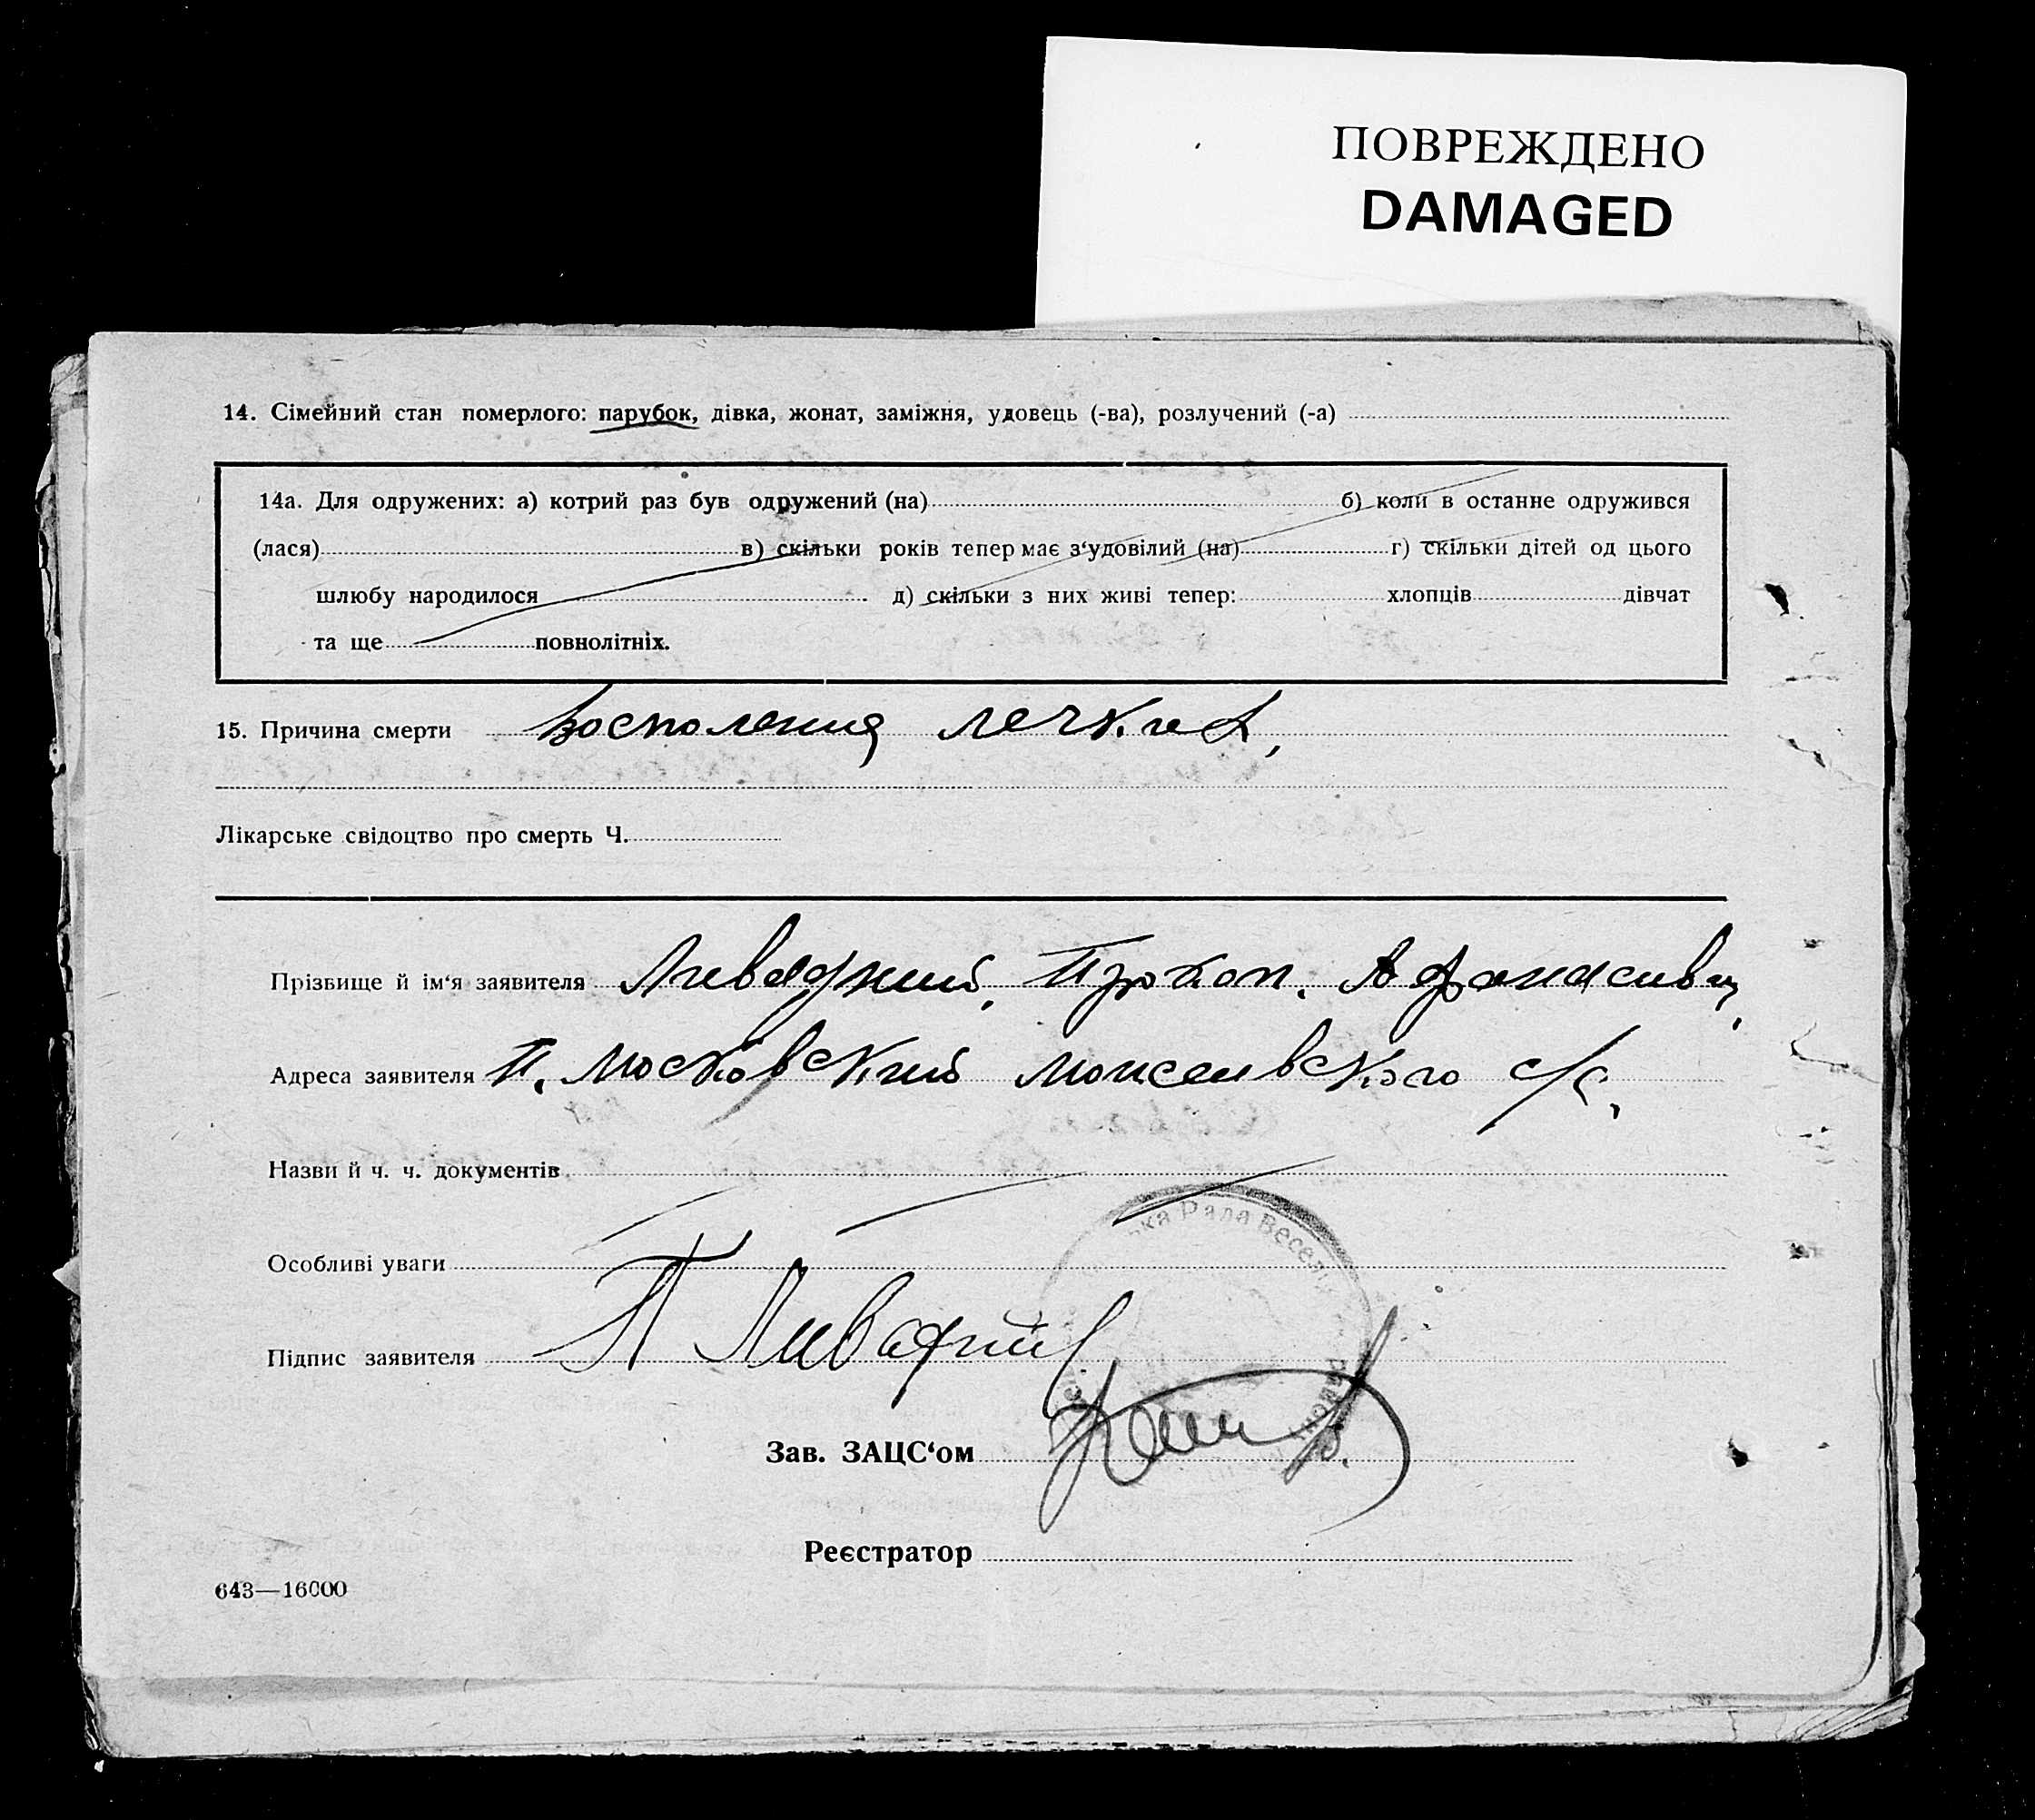 ПОВРЕЖДЕНО
DAMAGED
14. Сімейний стан померлого: парубок, дівка, жонат, заміжня, удовець (-ва), розлучений (-а)
14а. Для одружених: а) котрий раз був одружений (на) б) коли в останнє одружився
(лася) в) скільки років тепер має з‘удовілий (на) г) скільки дітей од цього
шлюбу народилося д) скільки з них живі тепер: хлопців дівчат
та ще повнолітніх.
15. Причина смерти восполения лечких,
Лікарське свідоцтво про смерть Ч.
Прізвище й ім‘я заявителя Ливадний, Прокоп. Афанасивич,
Адреса заявителя П. Московский моисеивского с/с,
Назви й ч. ч. документів
Особливі уваги
ка Рада Весел
Підпис заявителя П Ливадний
Зав. ЗАЦС‘ом
Реєстратор
643—16000